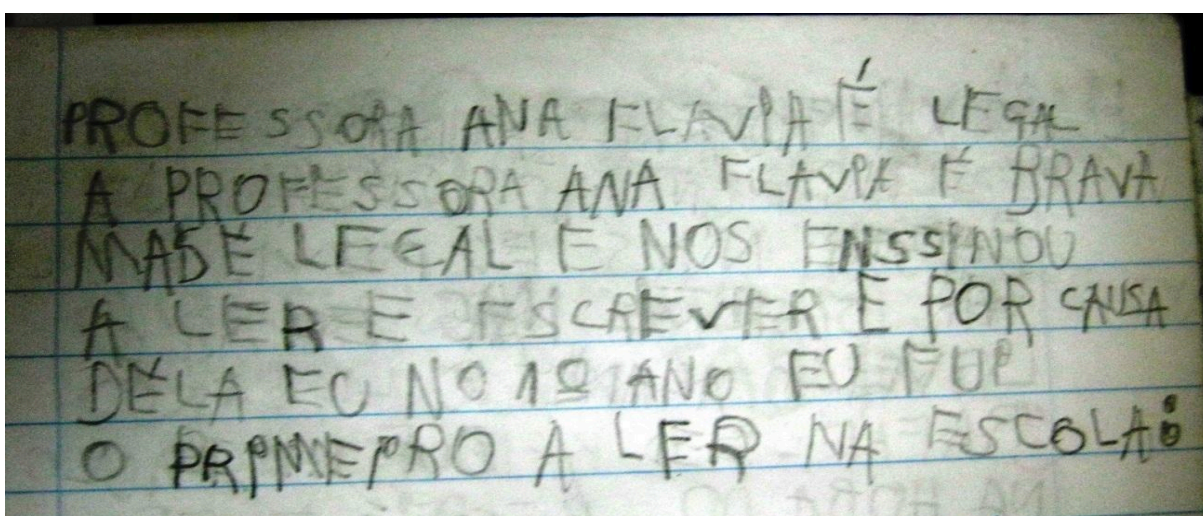 PROFESSORA ANA FLAVIA É LEGAL
A PROFESSORA ANA FLAVIA É BRAVA
MAS É LEGAL E NOS ENSSINOU
A LER E ESCREVER E POR CAUSA
DELA EU NO 1º ANO EU FUI
O PRIMEIRO A LER NA ESCOLA